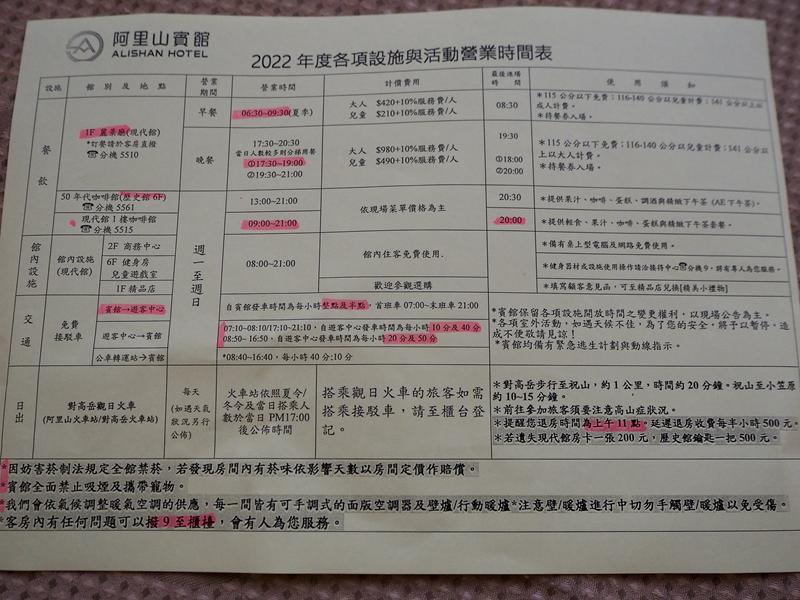 阿里山賓館
ALISHAN HOTEL
2022 年度各項設施與活動營業時間表
設施
館 別 及 地 點
營業期間
營業時間
計價費用
最後進場時 間
使 用 須 知
餐飲
1F 麗景廳(現代館)
*訂餐請於客房直撥
☎分機 5510
早餐
06:30~09:30(夏季)
大人 $420+10%服務費/人
兒童 $210+10%服務費/人
08:30
*115 公分以下免費；116-140 公分以兒童計費；141 公分以上以
成人計費。
*持餐券入場。
晚餐
17:30~20:30
當日人數較多則分梯用餐
①17:30~19:00
②19:30~21:00
大人 $980+10%服務費/人
兒童 $490+10%服務費/人
19:30
①18:00
②20:00
*115 公分以下免費；116-140 公分以兒童計費；141 公分以
上以大人計費。
*持餐券入場。
50 年代咖啡館(歷史館 6F)
☎分機 5561
13:00~21:00
依現場菜單價格為主
20:30
*提供果汁、咖啡、蛋糕、調酒與精緻下午茶 (AE 下午茶)。
現代館 1 樓咖啡館
☎分機 5515
09:00~21:00
20:00
*提供輕食、果汁、咖啡、蛋糕與精緻下午茶套餐。
館內設施
館內設施
(現代館)
2F 商務中心
6F 健身房
兒童遊戲室
1F 精品店
週一至週日
08:00~21:00
館內住客免費使用.
歡迎參觀選購
*備有桌上型電腦及網路免費使用。
*健身器材或設施使用操作請洽接待中心☎分機 9，將有專人為您服務。
*填寫顧客意見函，可至精品店兌換[精美小禮物]
交通
免費
接駁車
賓館→遊客中心
自賓館發車時間為每小時整點及半點，首班車 07:00~末班車 21:00
遊客中心→賓館
07:10~08:10/17:10~21:10，自遊客中心發車時間為每小時 10 分及 40 分
08:50~ 16:50，自遊客中心發車時間為每小時 20 分及 50 分
公車轉運站→賓館
*08:40~16:40，每小時 40 分;10 分
*賓館保留各項設施開放時間之變更權利，以現場公告為主。
*各項室外活動，如遇天候不佳，為了您的安全，將予以暫停，造
成不便敬請見諒！
*賓館均備有緊急逃生計劃與動線指示。
日出
對高岳觀日火車
(阿里山火車站/對高岳火車站)
每天
(如遇天氣
狀況另行
公佈)
火車站依照夏令/
冬令及當日搭乘人
數於當日 PM17:00
後公佈時間
搭乘觀日火車的旅客如需
搭乘接駁車，請至櫃台登
記。
*對高岳步行至祝山，約 1 公里，時間約 20 分鐘。祝山至小笠原
約 10~15 分鐘。
*前往參加旅客須要注意高山症狀況。
*提醒您退房時間為上午 11 點。延遲退房收費每半小時 500 元。
*若遺失現代館房卡一張 200 元，歷史館鑰匙一把 500 元。
*因妨害菸制法規定全館禁菸，若發現房間內有菸味依影響天數以房間定價作賠償。
*賓館全面禁止吸煙及攜帶寵物。
*我們會依氣候調整暖氣空調的供應，每一間皆有可手調式的面版空調器及壁爐/行動暖爐*注意壁/暖爐進行中切勿手觸壁/暖爐以免受傷。
*客房內有任何問題可以撥 9 至櫃檯，會有人為您服務。